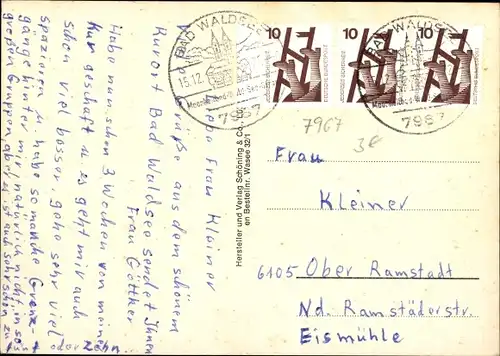 Liebe Frau Kleiner
Grüße aus dem schönem
Kurort Bad Waldsee sendet Ihnen
Frau Göttker
Habe nun schon 3 Wochen von meiner
Kur geschaft u. es geht mir auch
schon viel besser, gehe sehr viel
spazieren u. habe so manche
gänge hinter mir, natürlich nicht in so
großen Gruppen, aber es ist auch sehr schön zu
fünf oder Zehn...
Hersteller und Verlag Schöning & Co.
Bestellnr. Wasee 32/1
BAD WALDSEE
15.12
7967
10
DEUTSCHE BUNDESPOST
10
DEUTSCHE BUNDESPOST
10
BAD WALDSEE
7967
7967
3€
Frau
Kleiner
6105 Ober Ramstadt
Nd. Ramstäderstr.
Eismühle